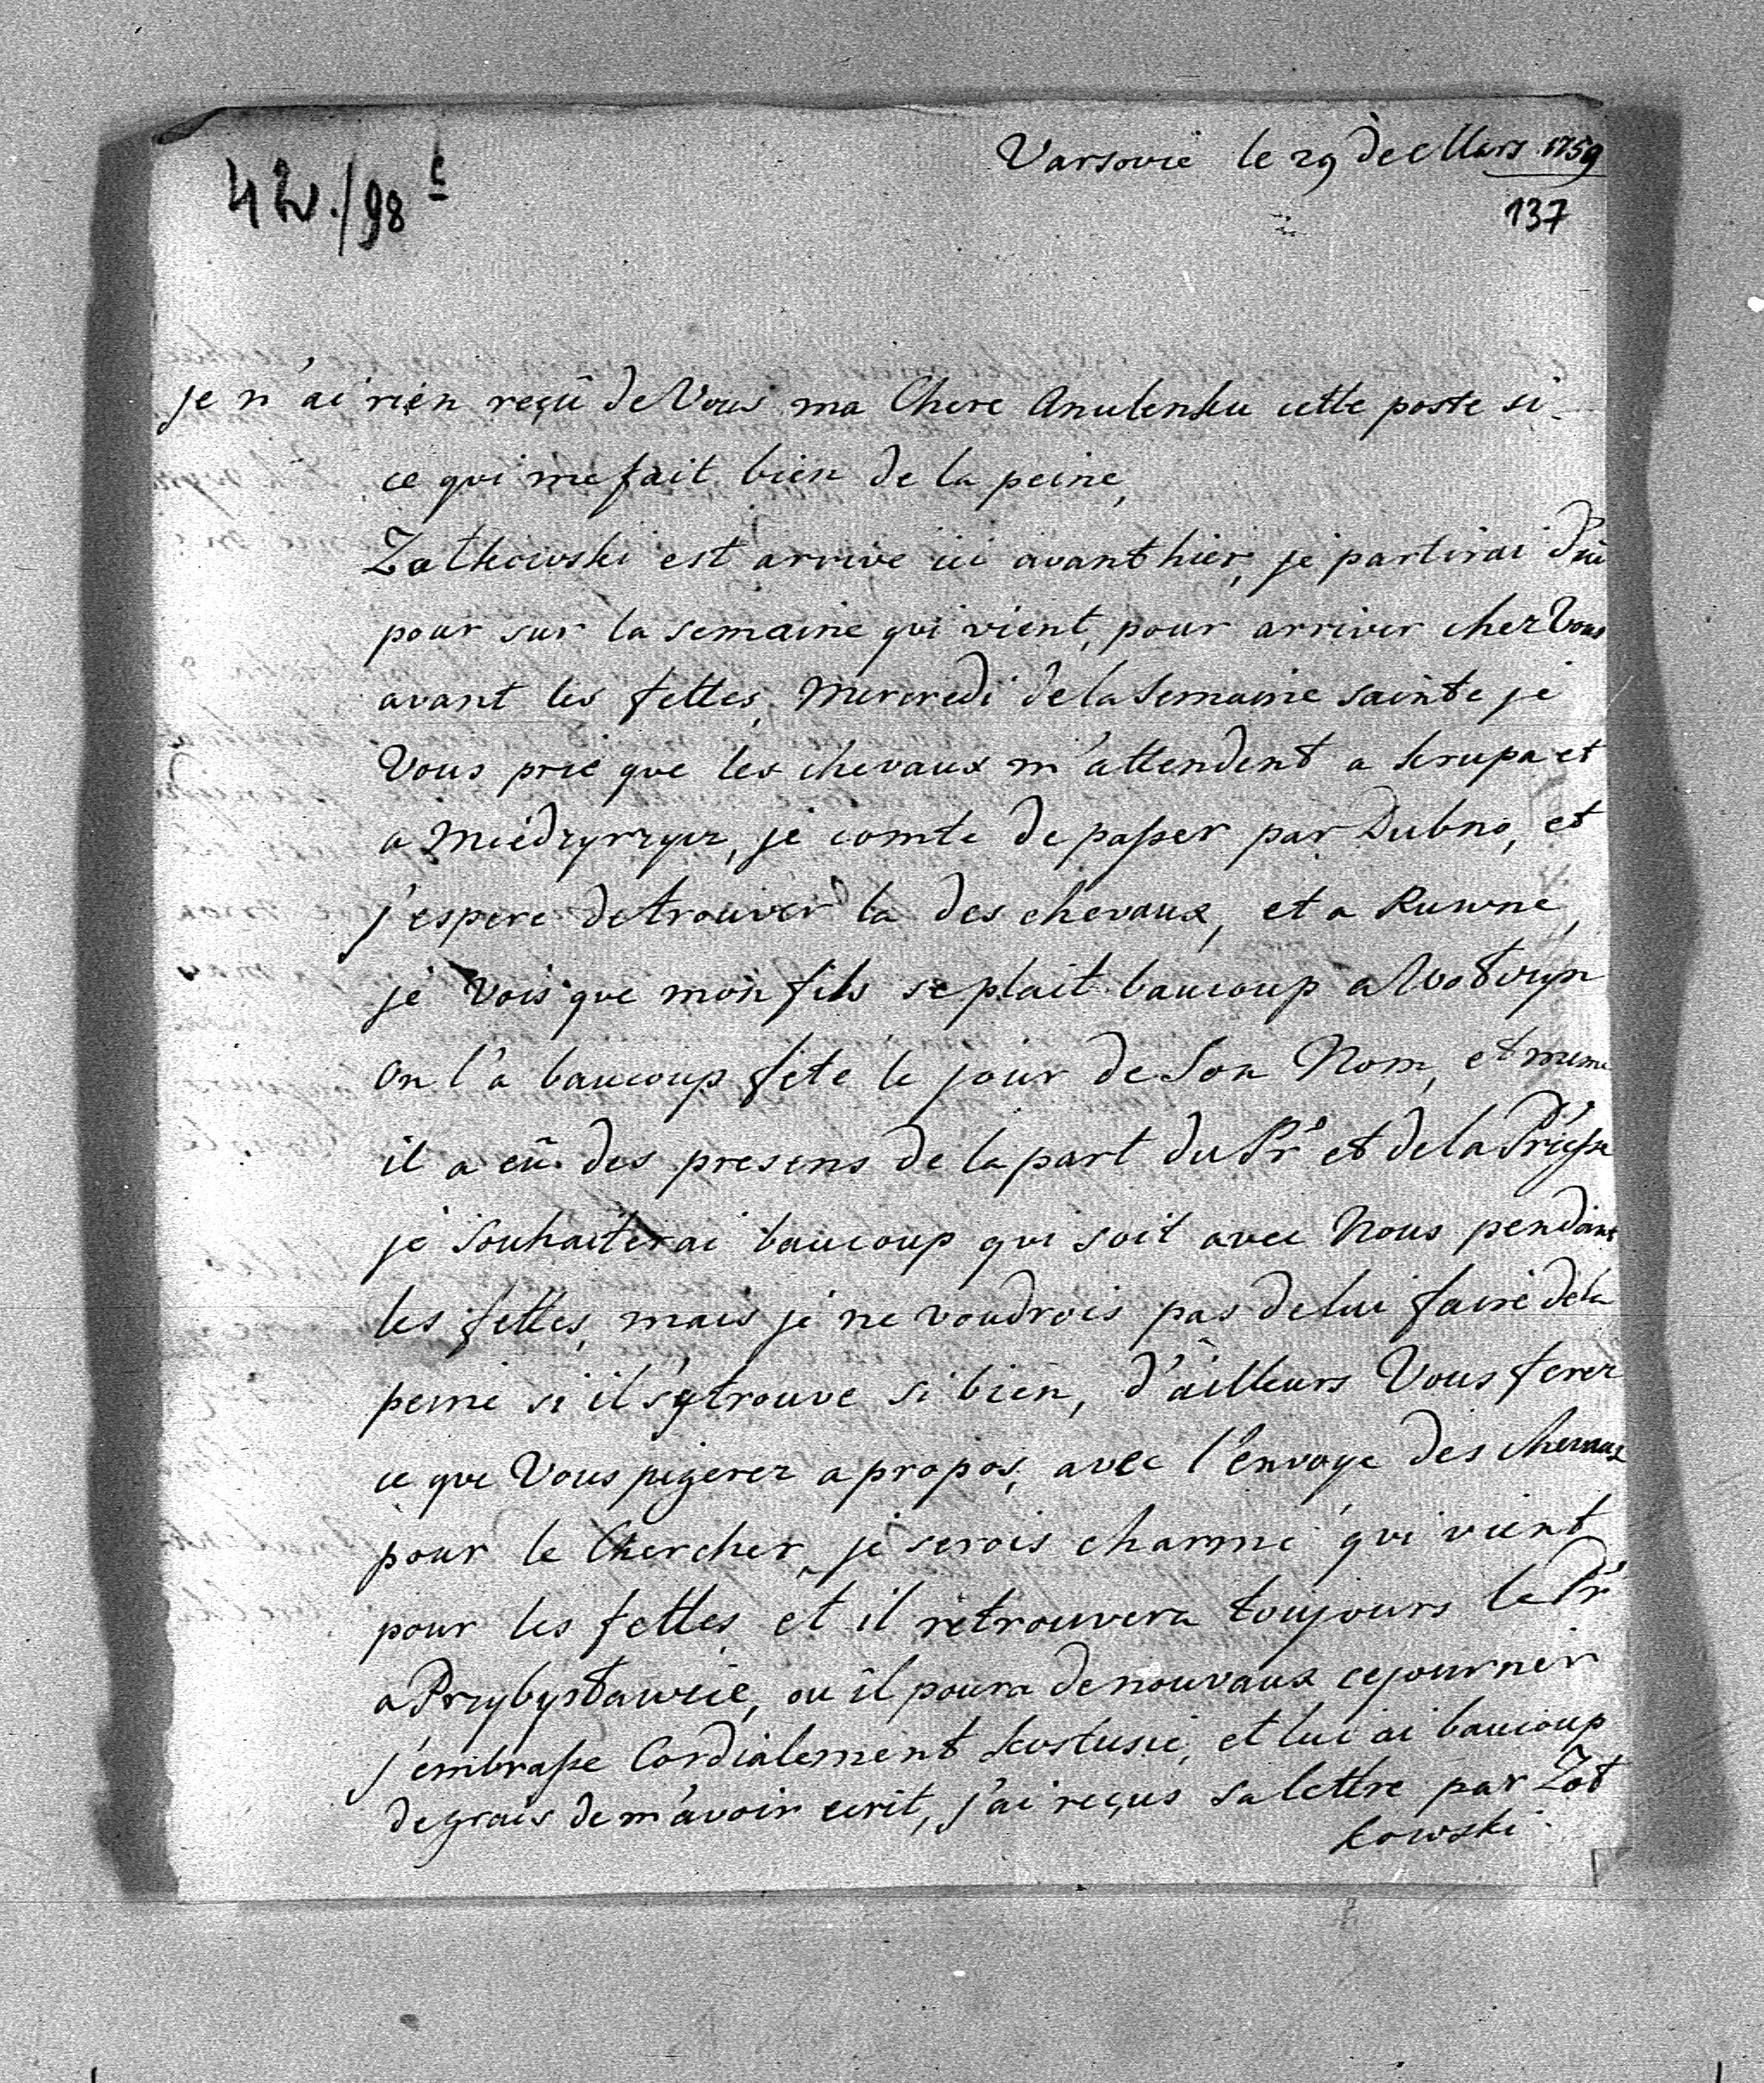 Varsovie le 29 de Mars 1759
42./98 c
137
je n'ai rien reçû de Vous ma Chere Anulenku cette poste si
ce qui me fait bien de la peine,
Zatkowski est arrive ici avant hier, je partirai d'ici
pour sur la semaine qui vient, pour arriver chez Vous
avant les fettes, Mercredi de la Semaine sainte je
Vous prie que les chevaux m'attendent a Krupa et
a Miedzyrzycz, je comte de passer par Dubno, et
j'espere de trouver la des chevaux, et a Ruwne,
je Vois que mon fils se plait baucoup a Wołczyn
On l'a baucoup fete le jour de Son Nom, et meme
il a eû des presens de la part du Pr̃ et de la Pr̃sse
je Souhaiterai baucoup qui soit avec Nous pendant
les fettes, mais je ne voudrois pas de lui faire de la
peine si il s'y trouve si bien, d'ailleurs Vous ferez
ce que Vous jugerez a propos, avec l'envoye des chevaux
pour le Chercher, je serois charme qui vient
pour les fettes, et il retrouvera toujours le Pr̃
a Przybysławice, ou il poura de nouvaux cejourner
j'embrasse Cordialement Kostusie, et lui ai baucoup
de grais de m'avoir ecrit, j'ai reçus sa lettre par Zat
kowski